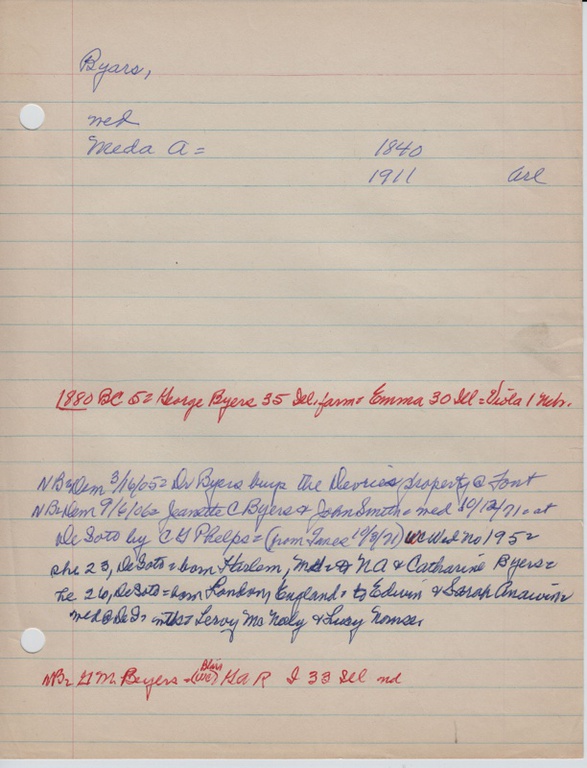 Byars,
med
Meda A = 1840
1911 Arl
1880 BC 5 = George Byers 35 Ill. farm = Emma 30 Ill = Viola 1 Neb.
NB = Dem 3/16/05 = Dr Byers buys the Devries property @ Font
NB = Dem 9/6/06 = Jeanette C Byers & John Smith = med 10/12/71 = at
DeSoto by C G Phelps = (from 10/3/71) WC Wed no 195 =
she 23, DeSoto = born Harlem, = NA & Catharine Byers =
he 26, DeSoto = born London, England = to Edwin & Sarah
med @ DeS = Leroy McNoly & Lucy
NB = G M Byers = (Blair WC) GAR I 33 Ill nd